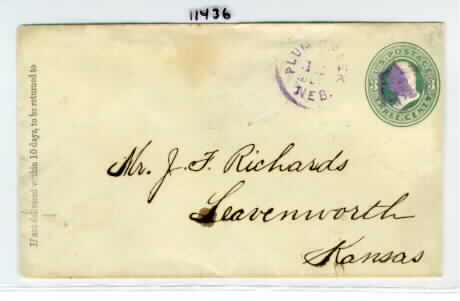 11436
If not delivered within 10 days, to be returned to
PLUM
NEB.
U.S. POSTAGE
THREE CENTS
Mr. J. F. Richards
Leavenworth
Kansas